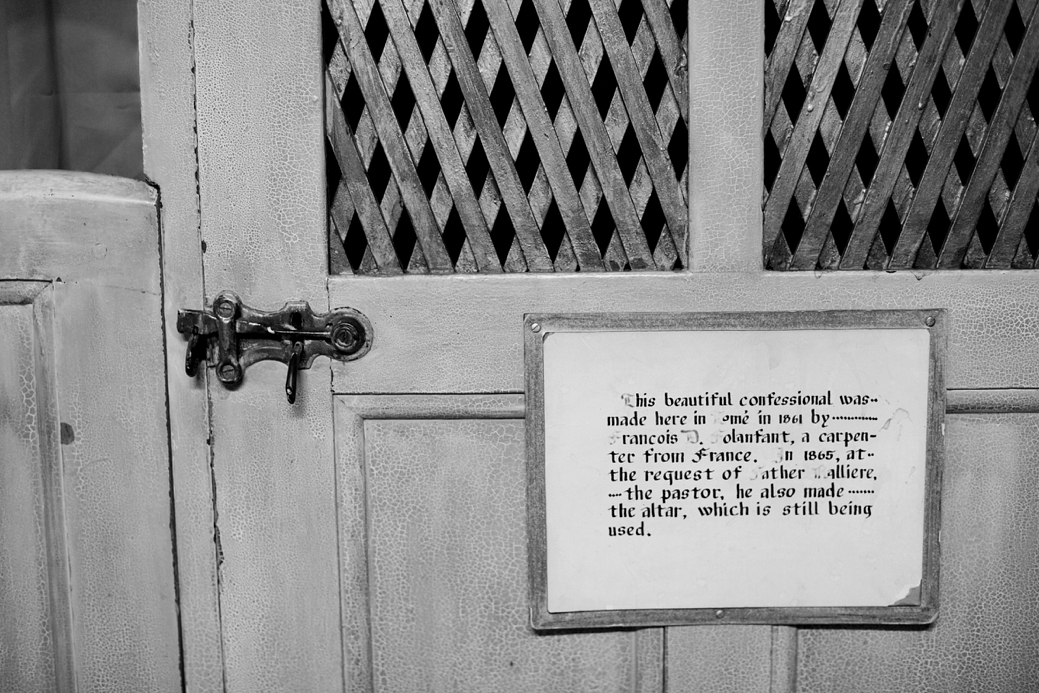 This beautiful confessional was··
made here in Tomé in 1861 by···········
Francois D. Folanfant, a carpen-
ter from France. In 1865, at··
the request of Father
····the pastor, he also made·······
the altar, which is still being
used.